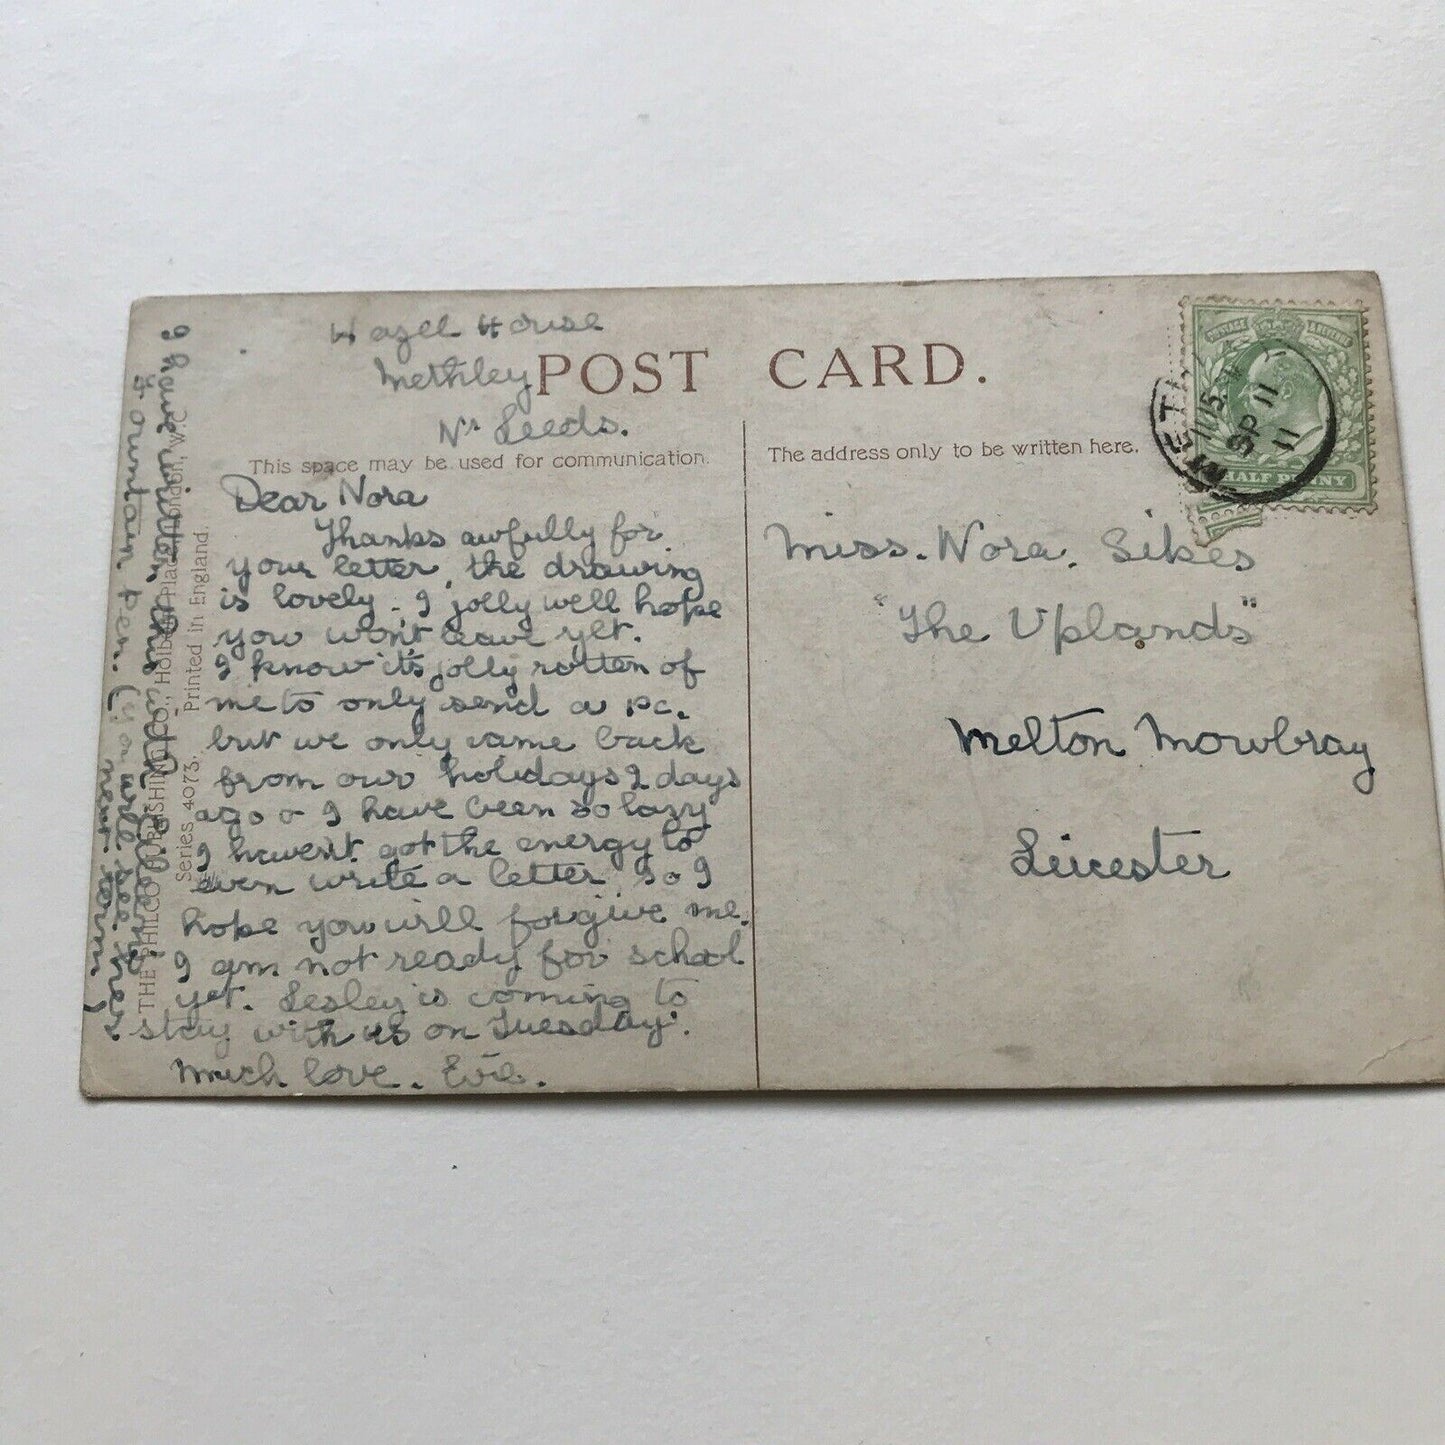 Hazel House
Methley
Nr Leeds.
POST CARD.
This space may be used for communication.
The address only to be written here.
Dear Nora
Thanks awfully for
your letter, the drawing
is lovely. I jolly well hope
you won't leave yet.
I know it's jolly rotten of
me to only send a pc.
but we only came back
from our holidays 2 days
ago & I have been so lazy
I havent got the energy to
even write a letter, so I
hope you will forgive me.
I am not ready for school
yet. Lesley is coming to
stay with us on Tuesday.
Much love. Evie.
I have written this with
Fountain Pen. (You will see her
next term)
THE PHILCO PUBLISHING CO., Holborn Place, London, W.C.
Series 4073. Printed in England.
Miss. Nora. Sikes
"The Uplands"
Melton Mowbray
Leicester
METHLEY
SP 11
11
POSTAGE & REVENUE
HALF PENNY